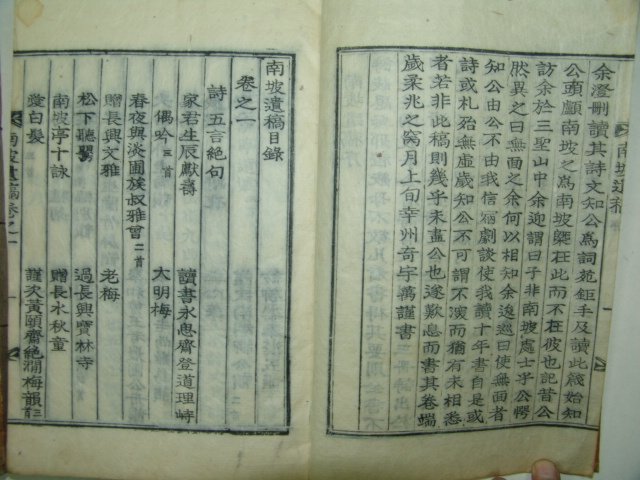 余澄刪讀其詩文知公爲詞苑鉅手及讀此幾始知
公頭顱南坡之爲南坡槩在此而不在彼也記昔公
訪余於三聖山中余迎謂曰子非南坡處士乎公愕
然異之曰無面之余何以相知余逡巡曰使無面者
知公由公不由我信瑣劇談使我讀十年書自是或
詩或札殆無虛歲知公不可謂不深而猶有未相悉
者若非此稿則幾乎未盡公也遂歎息而書其卷端
歲柔兆之窩月上旬幸州奇宇萬謹書
南坡遺稿
南坡遺稿目錄
卷之一
詩 五言絶句
家君生辰獻壽 讀書永思齋登道理峙
偶吟 二首 大明梅
春夜與淡圃族叔雅會 二首
贈長興文雅 老梅
松下聽 過長興寶林寺
南坡亭十詠 贈長水秋童
愛白髮 謹次黃頤齋絶澗梅韻 二首
南坡遺稿卷之一